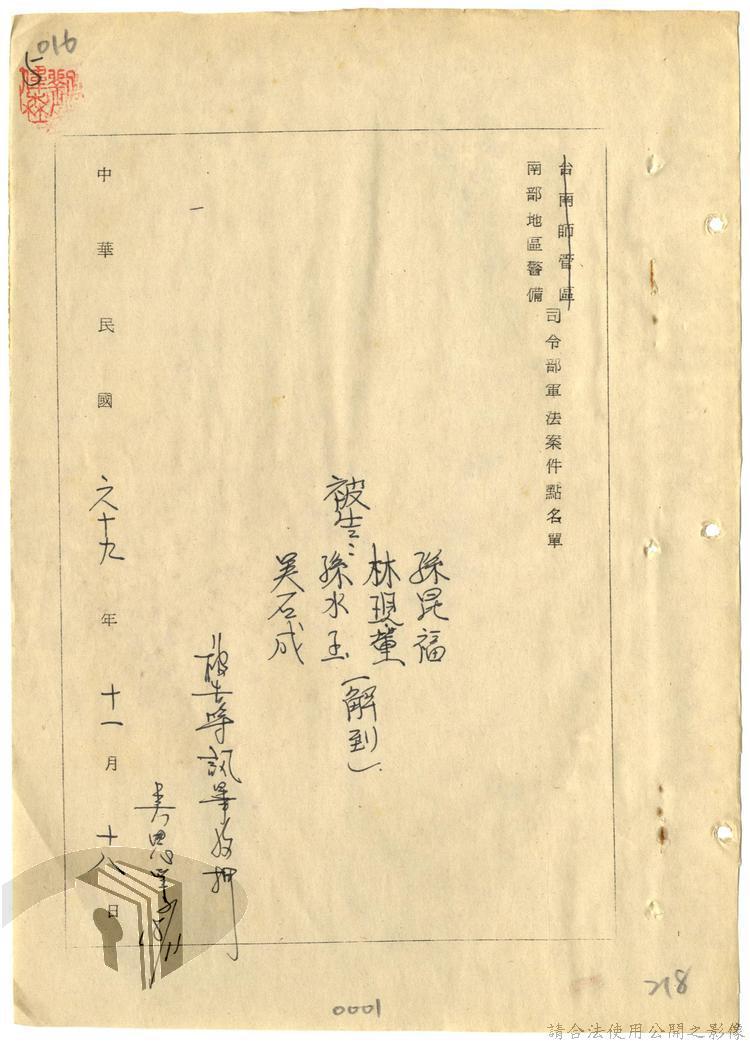 016
5
台南師管區
南部地區警備
司令部軍法案件點名單
孫昆福
林現董
被告：孫水玉（解到）
吳石成
被告等訊畢收押
中華民國六十九年十一月十八日
218
0001
請合法使用公開之影像